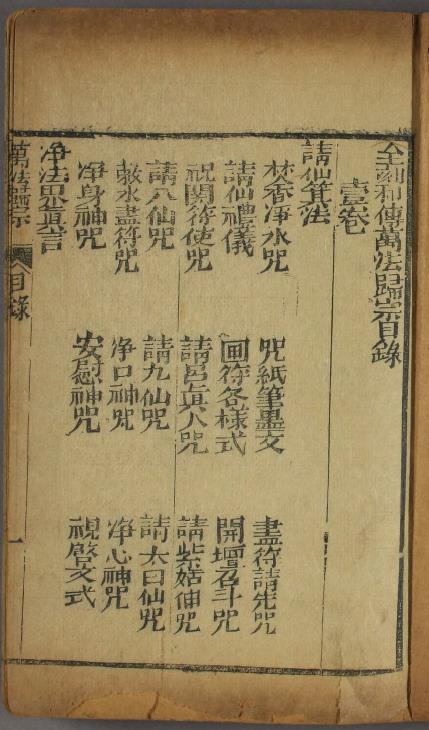 全刻秘傳萬法歸宗目錄
壹卷
請仙箕法
焚香淨水咒 咒紙筆墨文 畫符請先咒
請仙禮儀 画符各樣式 開壇召斗咒
祝関符使咒 請呂真人咒 請紫姑仙咒
請八仙咒 請九仙咒 請太白仙咒
敕水畫符咒 净口神咒 净心神咒
净身神咒 安慰神咒 視啓文式
净法界真言
萬法歸宗 目錄 一